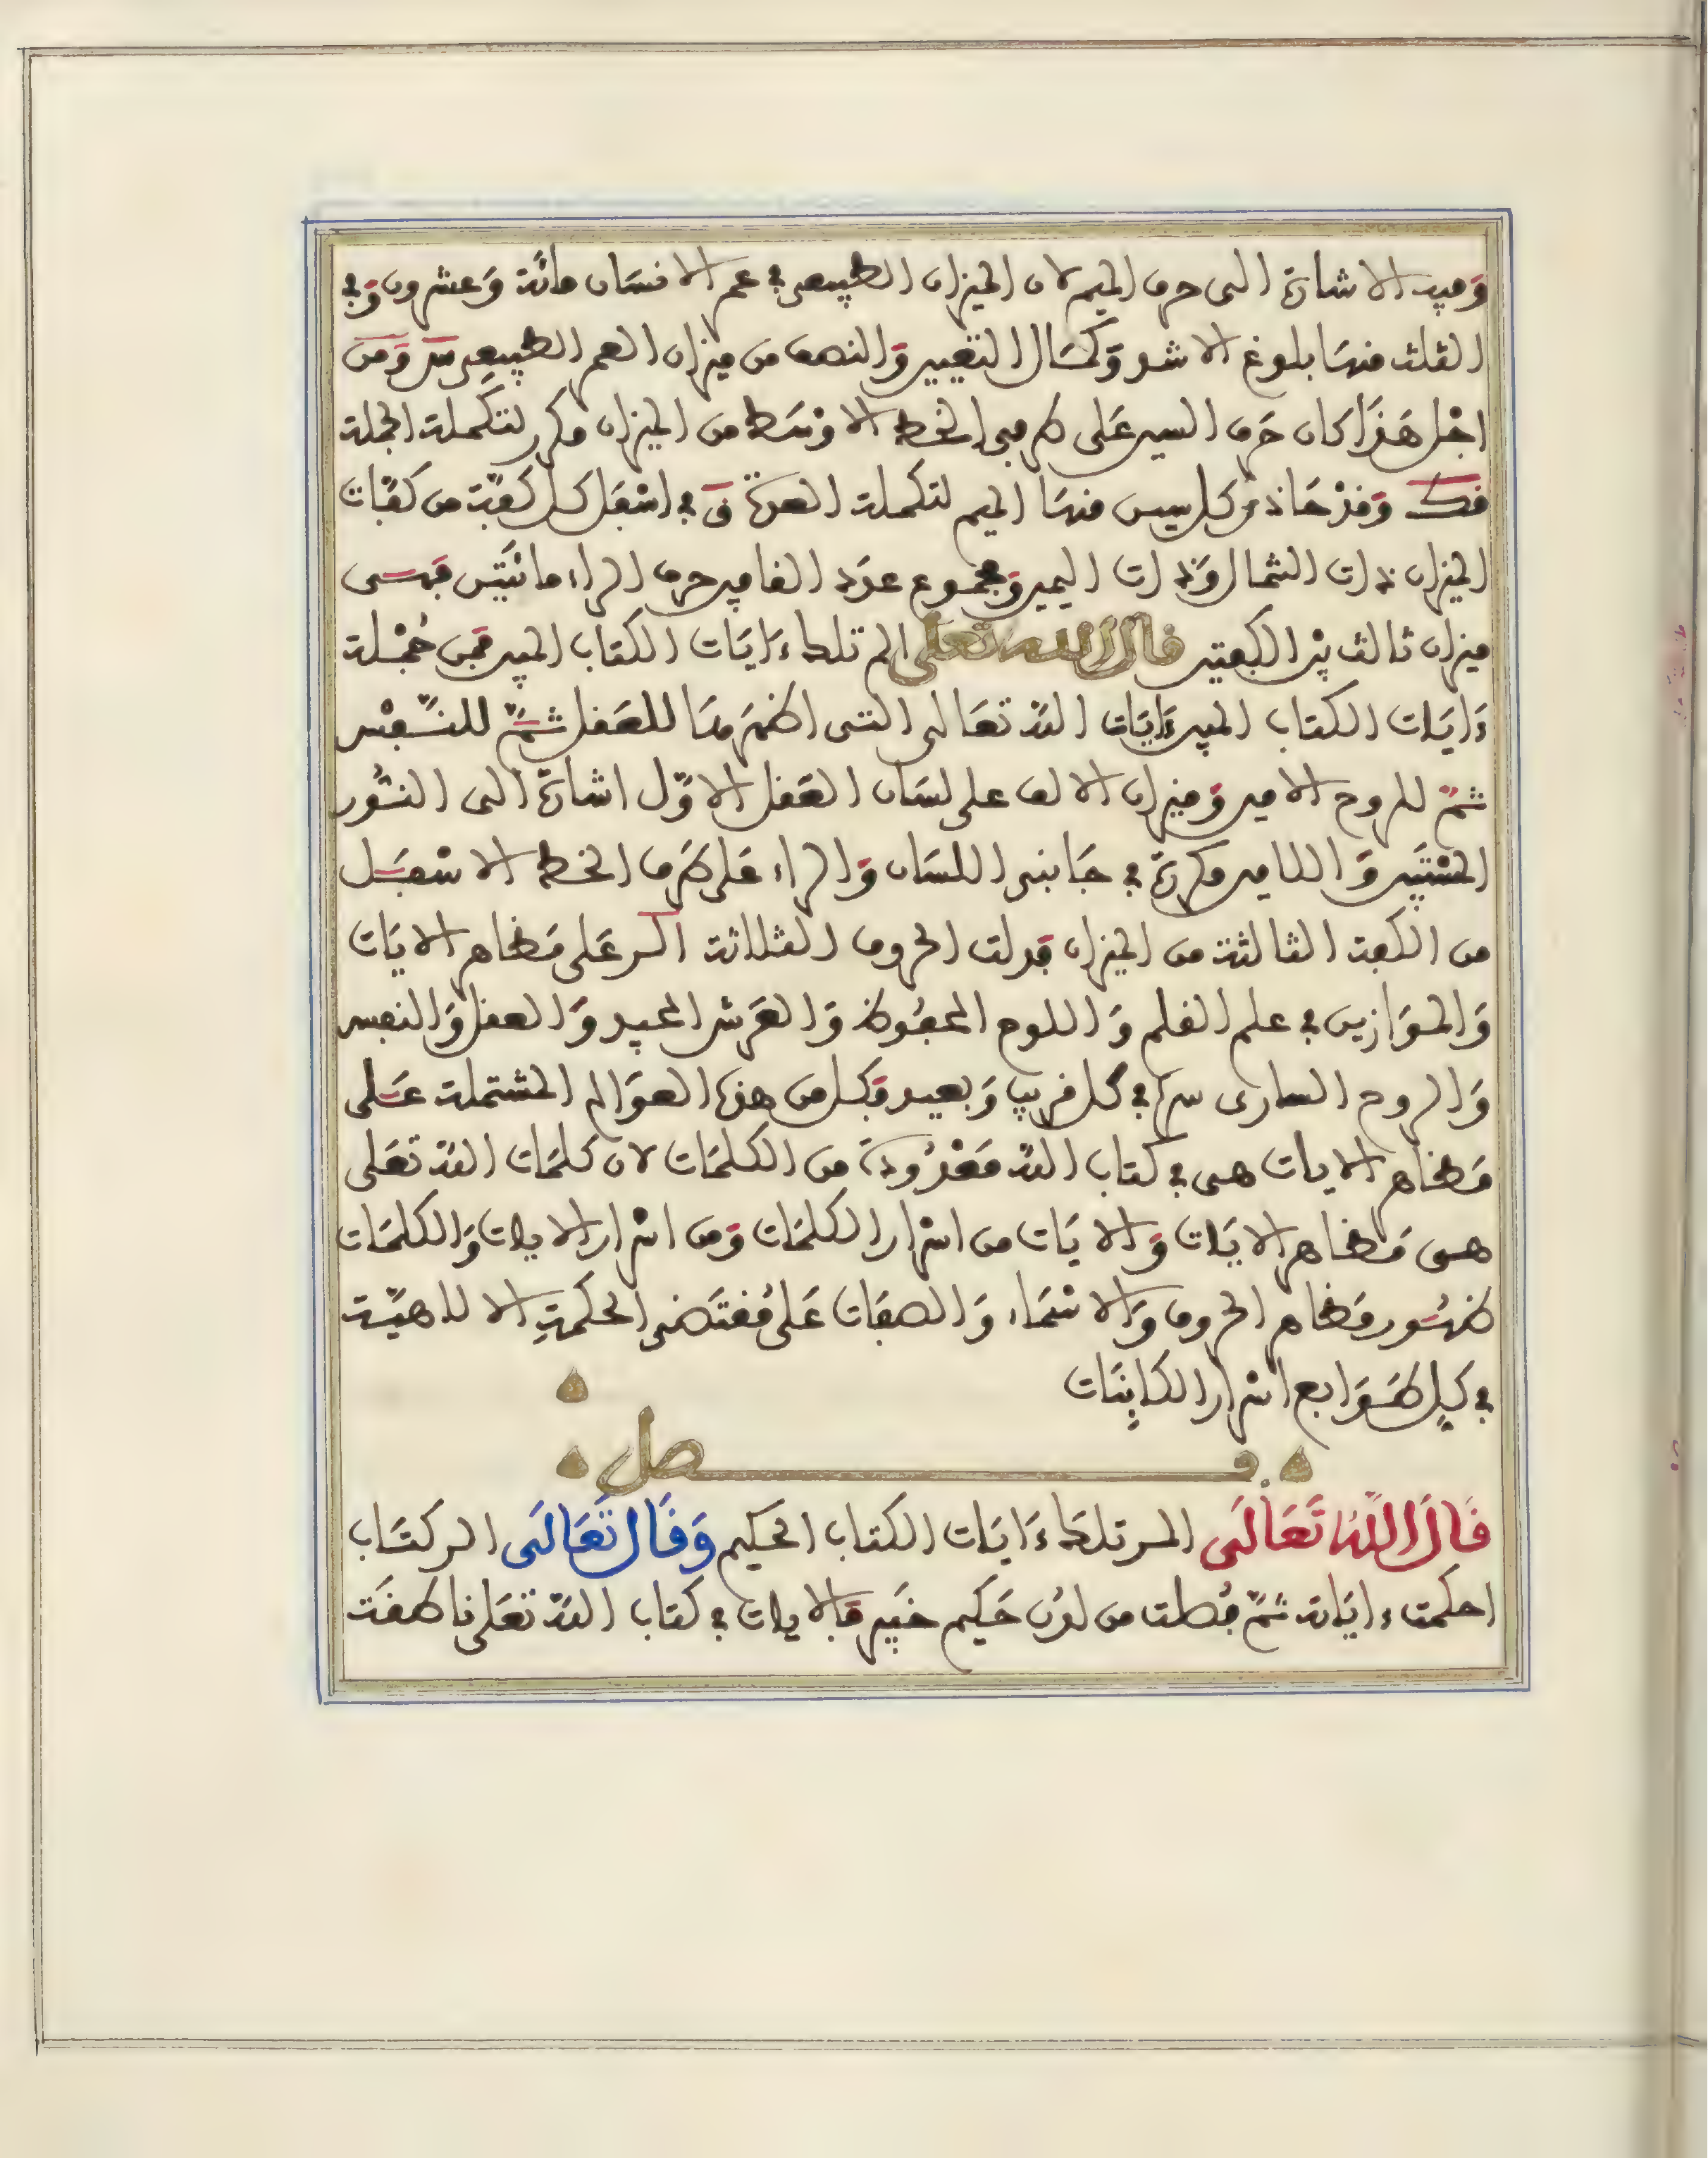 وفيه الاشارة الى حرف الميم لان الميزان الطبيعي في عمر الانسان مائة وعشرون وفي
الثلث منها بلوغ الاشد وكمال التغيير والنصف من ميزان العمر الطبيعي س ومن
اجل هذا كان حرف السين على طرفي الخط الاوسط من الميزان مكرر لتكملة الجملة
قك وقد حاذى كل سين منها الميم لتكملة العدة ق في اسفل كل كفة من كفات
الميزان ذات الشمال وذات اليمين ومجموع عدد القاعين حرف الراء مائتين فهى
ميزان ثالث بين الكفتين قال الله تعلى الر تلك ءايات الكتاب المبين فمن جملة
ءايات الكتاب المبين ءايات الله تعالى التى اظهرها للعقل ثم للنفس
ثم للروح الامين وميزان الالف على لسان العقل الاول اشارة الى النور
المستبين واللامين مكررة في جانبى اللسان والراء على طرف الخط الاسفل
من الكفة الثالثة من الميزان فدلت الحروف الثلاثة الر على مظاهر الايات
والموازين في علم القلم واللوح المحفوظ والعرش المجيد والعقل والنفس
والروح السارى سره في كل قريب وبعيد فكل من هذه العوالم المشتملة على
مظاهر الايات هى في كتاب الله معدودة من الكلمات لان كلمات الله تعلى
هى مظاهر الايات والايات من اسرار الكلمات ومن اسرار الايات والكلمات
ظهور مظاهر الحروف والاسماء والصفات على مقتضى الحكمة الالاهية
في كل طوابع اسرار الكاينات
فصل
قال الله تعالى الر تلك ءايات الكتاب الحكيم وقال تعالى الر كتاب
احكمت ءاياته ثم فصلت من لدن حكيم خبير فالايات في كتاب الله تعلى ناطقة